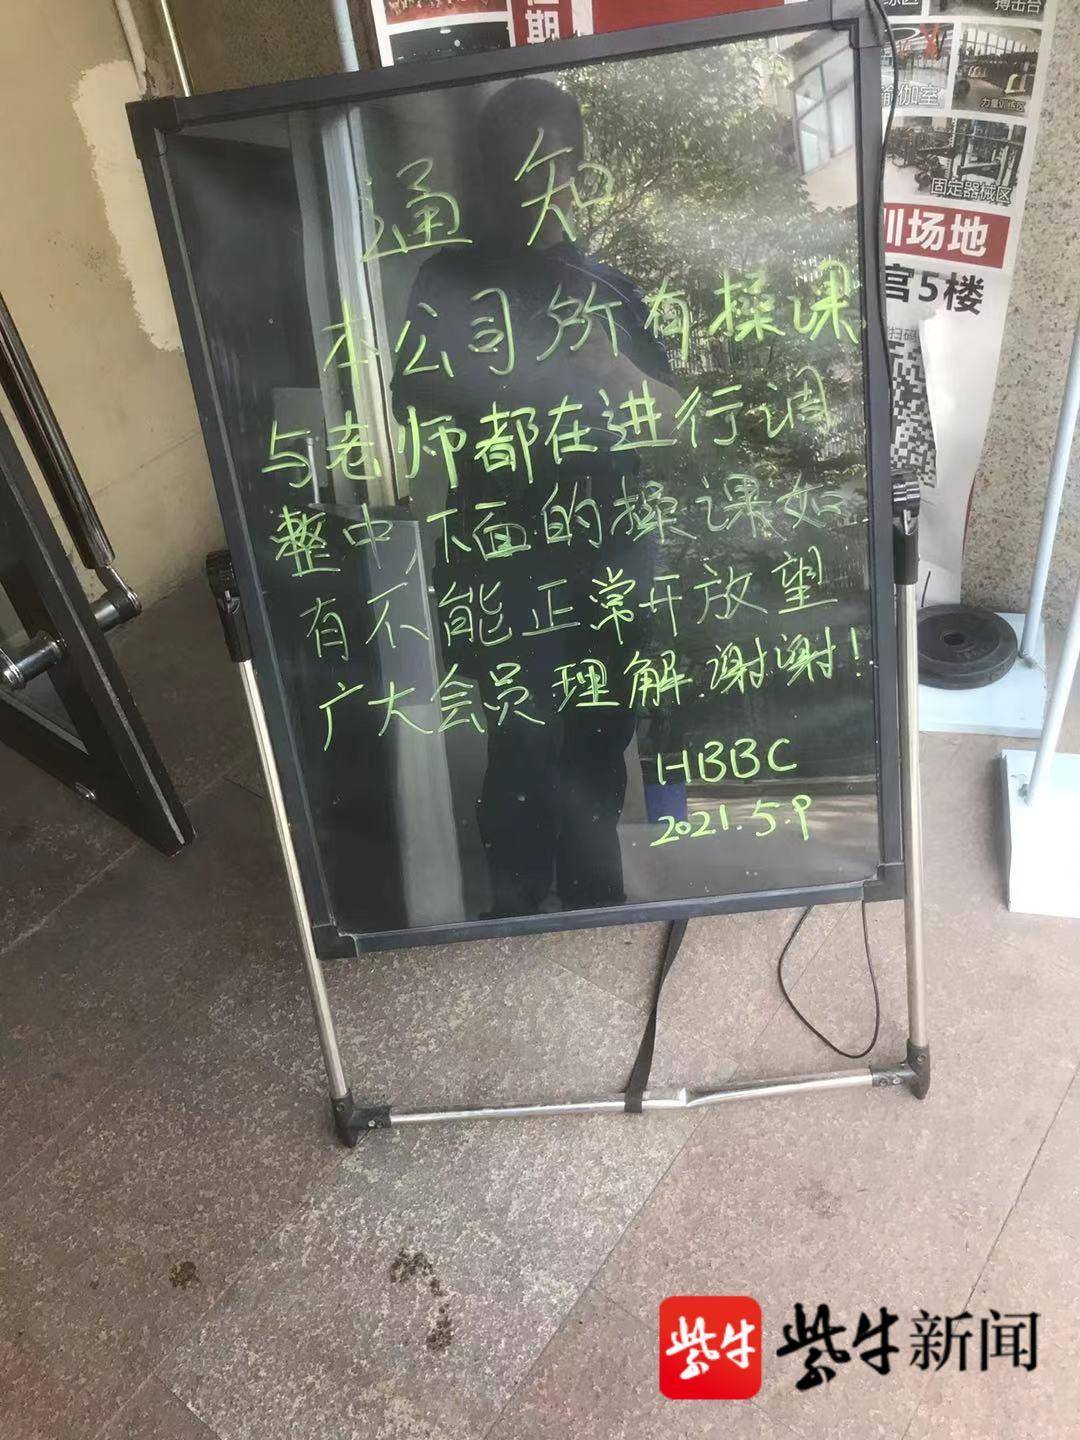 期
练区
搏击台
瑜伽室
力量训练区
固定器械区
训场地
官5楼
扫码
通知
本公司所有操课
与老师都在进行调
整中,下面的操课如
有不能正常开放望
广大会员理解.谢谢!
HBBC
2021.5.9
紫牛
紫牛新闻